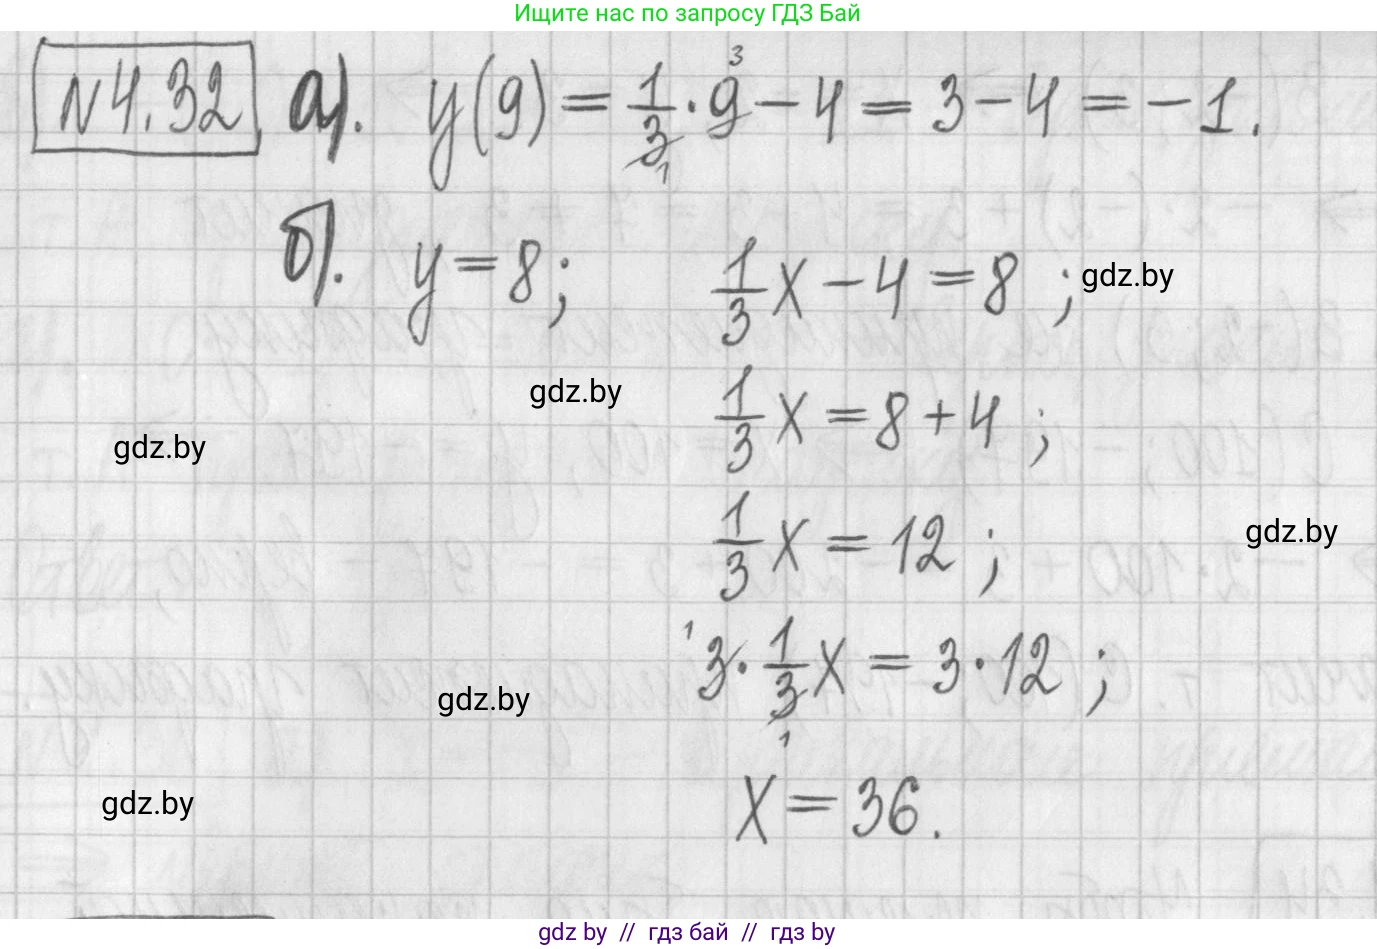 Ищите нас по запросу ГДЗ Бай
№4.32 а). y(9) = 1/3 · 9 3 − 4 = 3 − 4 = −1.
1
б). y = 8; 1/3 x − 4 = 8 ; gdz.by
gdz.by 1/3 x = 8 + 4 ;
gdz.by
1/3 x = 12 ; gdz.by
1 3 · 1/3 x = 3 · 12 ;
gdz.by 1
gdz.by x = 36.
gdz by // гдз бай // гдз by